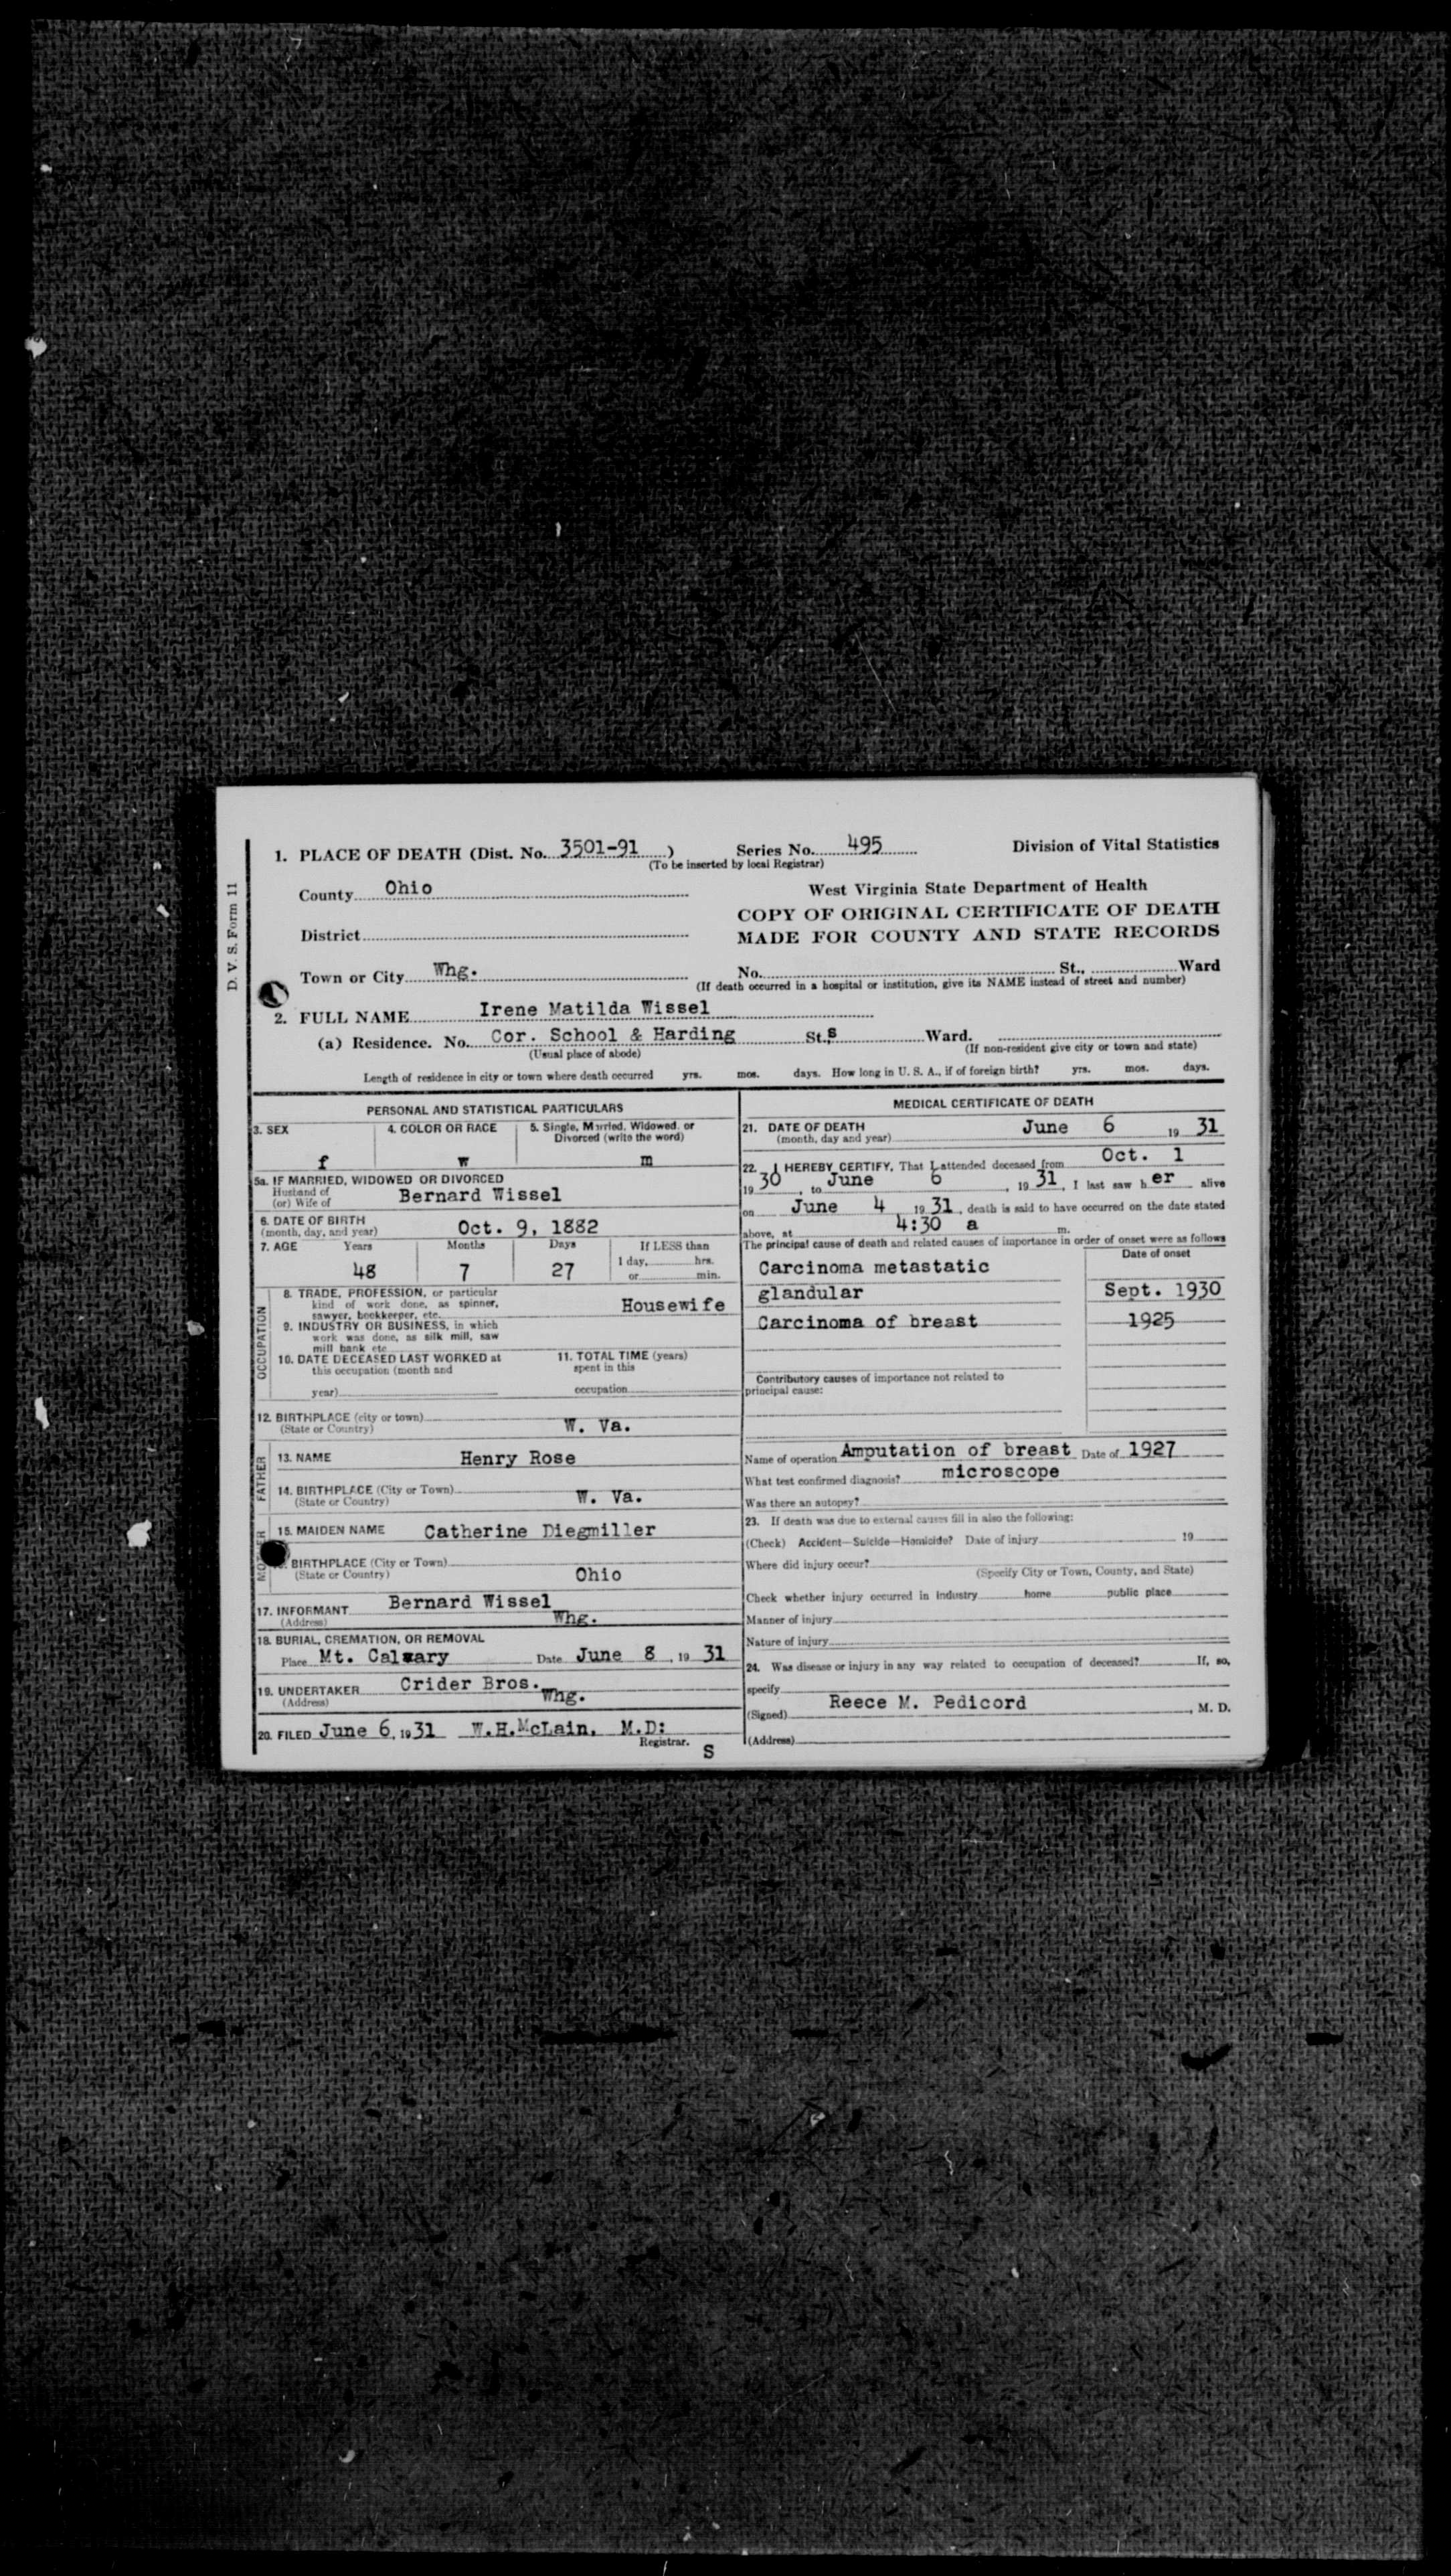 D. V. S. Form 11
1. PLACE OF DEATH (Dist. No. 3501-91 ) Series No. 495 Division of Vital Statistics
(To be inserted by local Registrar)
County Ohio West Virginia State Department of Health
COPY OF ORIGINAL CERTIFICATE OF DEATH
District MADE FOR COUNTY AND STATE RECORDS
Town or City Whg. No. St., Ward
(If death occurred in a hospital or institution, give its NAME instead of street and number)
2. FULL NAME Irene Matilda Wissel
(a) Residence. No. Cor. School & Harding St.,s Ward.
(Usual place of abode) (If non-resident give city or town and state)
Length of residence in city or town where death occurred yrs. mos. days. How long in U. S. A., if of foreign birth? yrs. mos. days.
PERSONAL AND STATISTICAL PARTICULARS
3. SEX 4. COLOR OR RACE 5. Single, Married, Widowed, or
Divorced (write the word)
f w m
5a. IF MARRIED, WIDOWED OR DIVORCED
Husband of
(or) Wife of Bernard Wissel
6. DATE OF BIRTH
(month, day, and year) Oct. 9, 1882
7. AGE Years Months Days If LESS than
1 day, hrs.
48 7 27 or min.
OCCUPATION
8. TRADE, PROFESSION, or particular
kind of work done, as spinner,
sawyer, bookkeeper, etc. Housewife
9. INDUSTRY OR BUSINESS, in which
work was done, as silk mill, saw
mill bank etc
10. DATE DECEASED LAST WORKED at 11. TOTAL TIME (years)
this occupation (month and spent in this
year) occupation
12. BIRTHPLACE (city or town)
(State or Country) W. Va.
FATHER
13. NAME Henry Rose
14. BIRTHPLACE (City or Town)
(State or Country) W. Va.
15. MAIDEN NAME Catherine Diegmiller
BIRTHPLACE (City or Town)
(State or Country) Ohio
17. INFORMANT Bernard Wissel
(Address) Whg.
18. BURIAL, CREMATION, OR REMOVAL
Place Mt. Calvary Date June 8, 19 31
19. UNDERTAKER Crider Bros.
(Address) Whg.
20. FILED June 6, 19 31 W.H.McLain, M.D:
Registrar.
S
MEDICAL CERTIFICATE OF DEATH
21. DATE OF DEATH
(month, day and year) June 6 19 31
22. I HEREBY CERTIFY, That I attended deceased from Oct. 1
19 30, to June 6, 19 31, I last saw h er alive
on June 4 19 31, death is said to have occurred on the date stated
above, at 4:30 a m.
The principal cause of death and related causes of importance in order of onset were as follows
Date of onset
Carcinoma metastatic
glandular Sept. 1930
Carcinoma of breast 1925
Contributory causes of importance not related to
principal cause:
Name of operation Amputation of breast Date of 1927
What test confirmed diagnosis? microscope
Was there an autopsy?
23. If death was due to external causes fill in also the following:
(Check) Accident—Suicide—Homicide? Date of injury 19
Where did injury occur?
(Specify City or Town, County, and State)
Check whether injury occurred in industry home public place
Manner of injury
Nature of injury
24. Was disease or injury in any way related to occupation of deceased? If, so,
specify
(Signed) Reece M. Pedicord, M. D.
(Address)